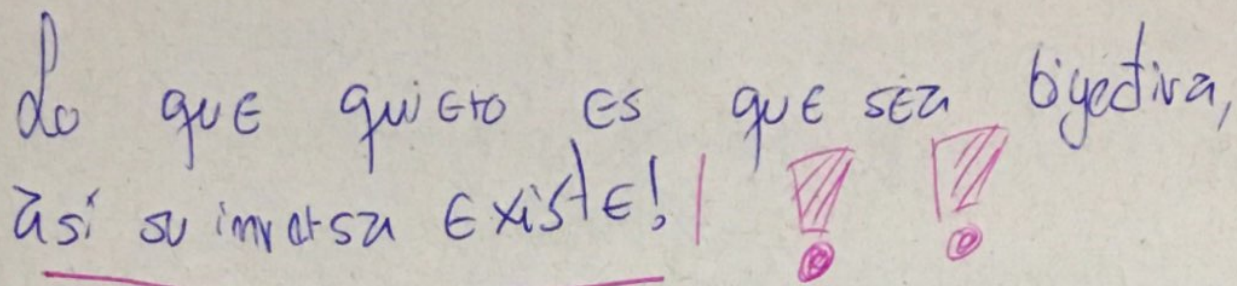 Lo que quiero es que sea biyectiva,
así su inversa existe! | ! !